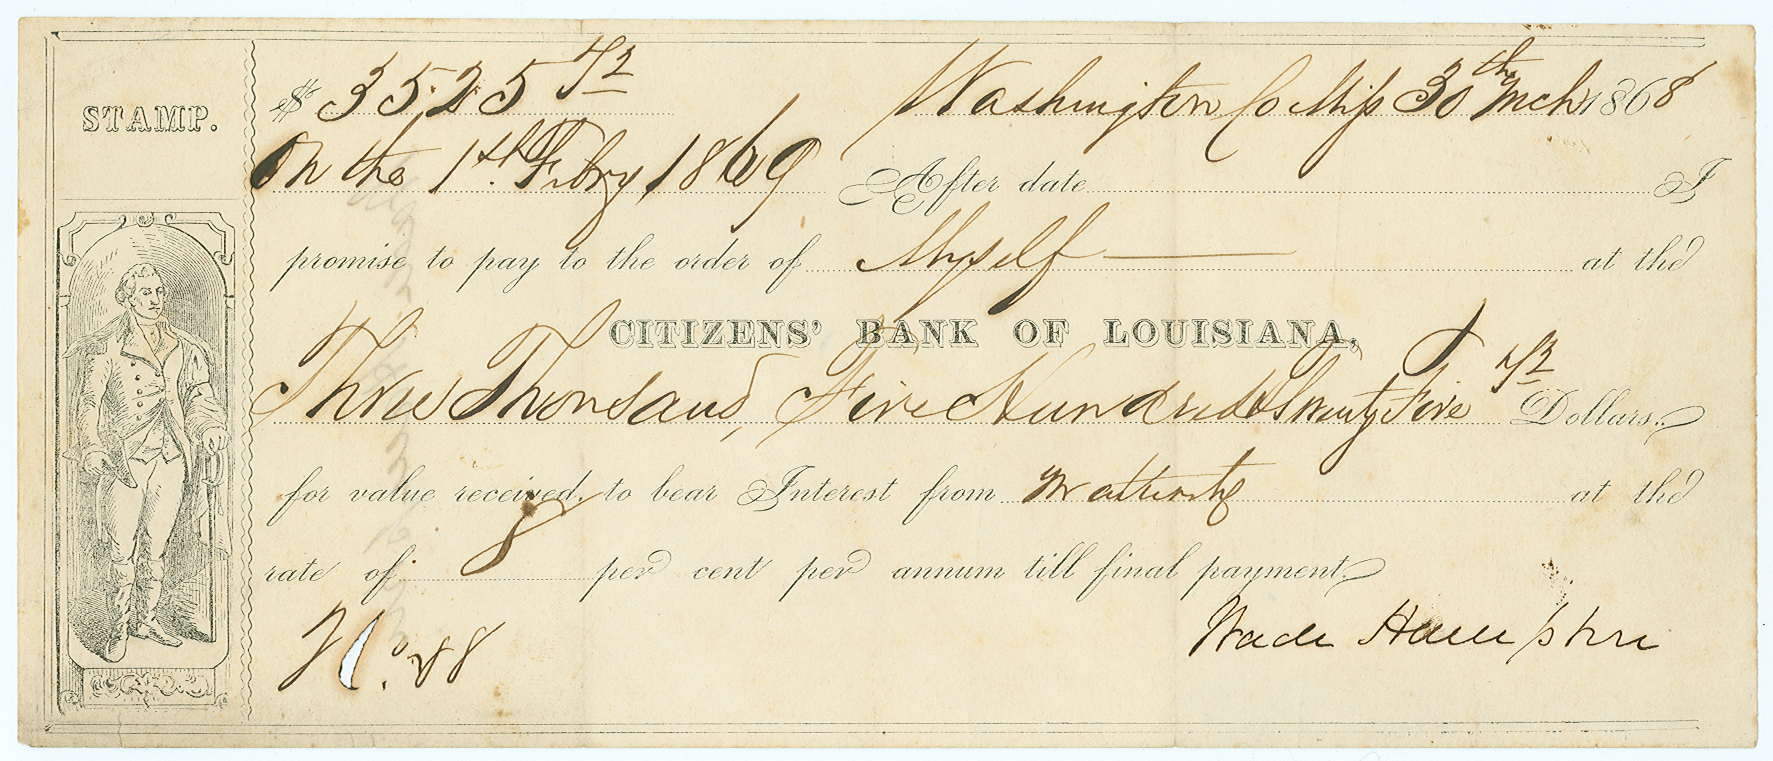 STAMP.
$ 3525 72 Washington Co Miss 30th Mch 1868
On the 1st. Feb'ry, 1869 After date I
promise to pay to the order of Myself at the
CITIZENS' BANK OF LOUISIANA,
Three Thousand, Five Hundred & Twenty Five 72 Dollars.
for value received, to bear Interest from maturity at the
rate of 8 per cent per annum till final payment
Wade Hampton